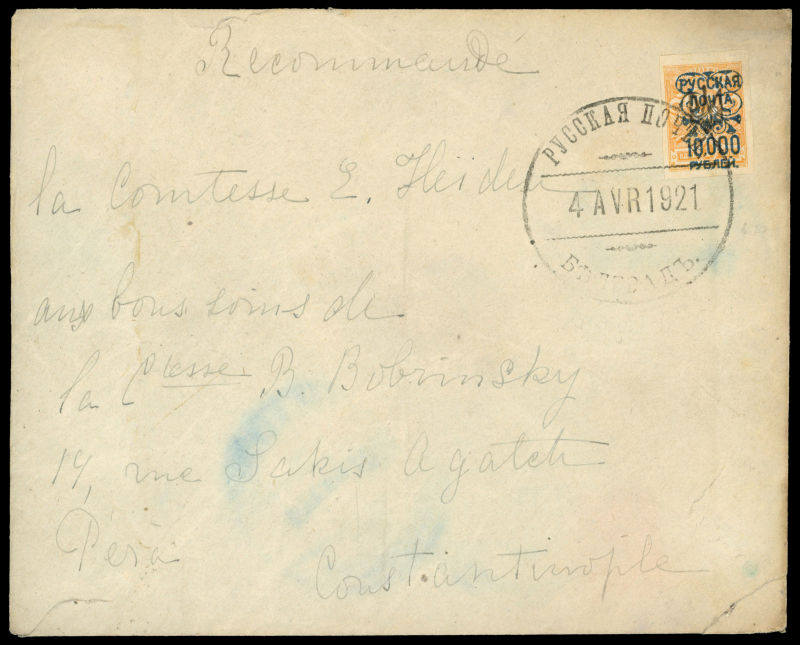 Recommandé
РУССКАЯ
ПОЧТА
10.000
РУБЛЕЙ.
РУССКАЯ ПОЧТА
4 AVR 1921
БѢЛГРАДЪ.
la Comtesse E. Heiden
aux bons soins de
la Ctesse B. Bobrinsky
14, rue Sakis Agatch
Péra
Constantinople